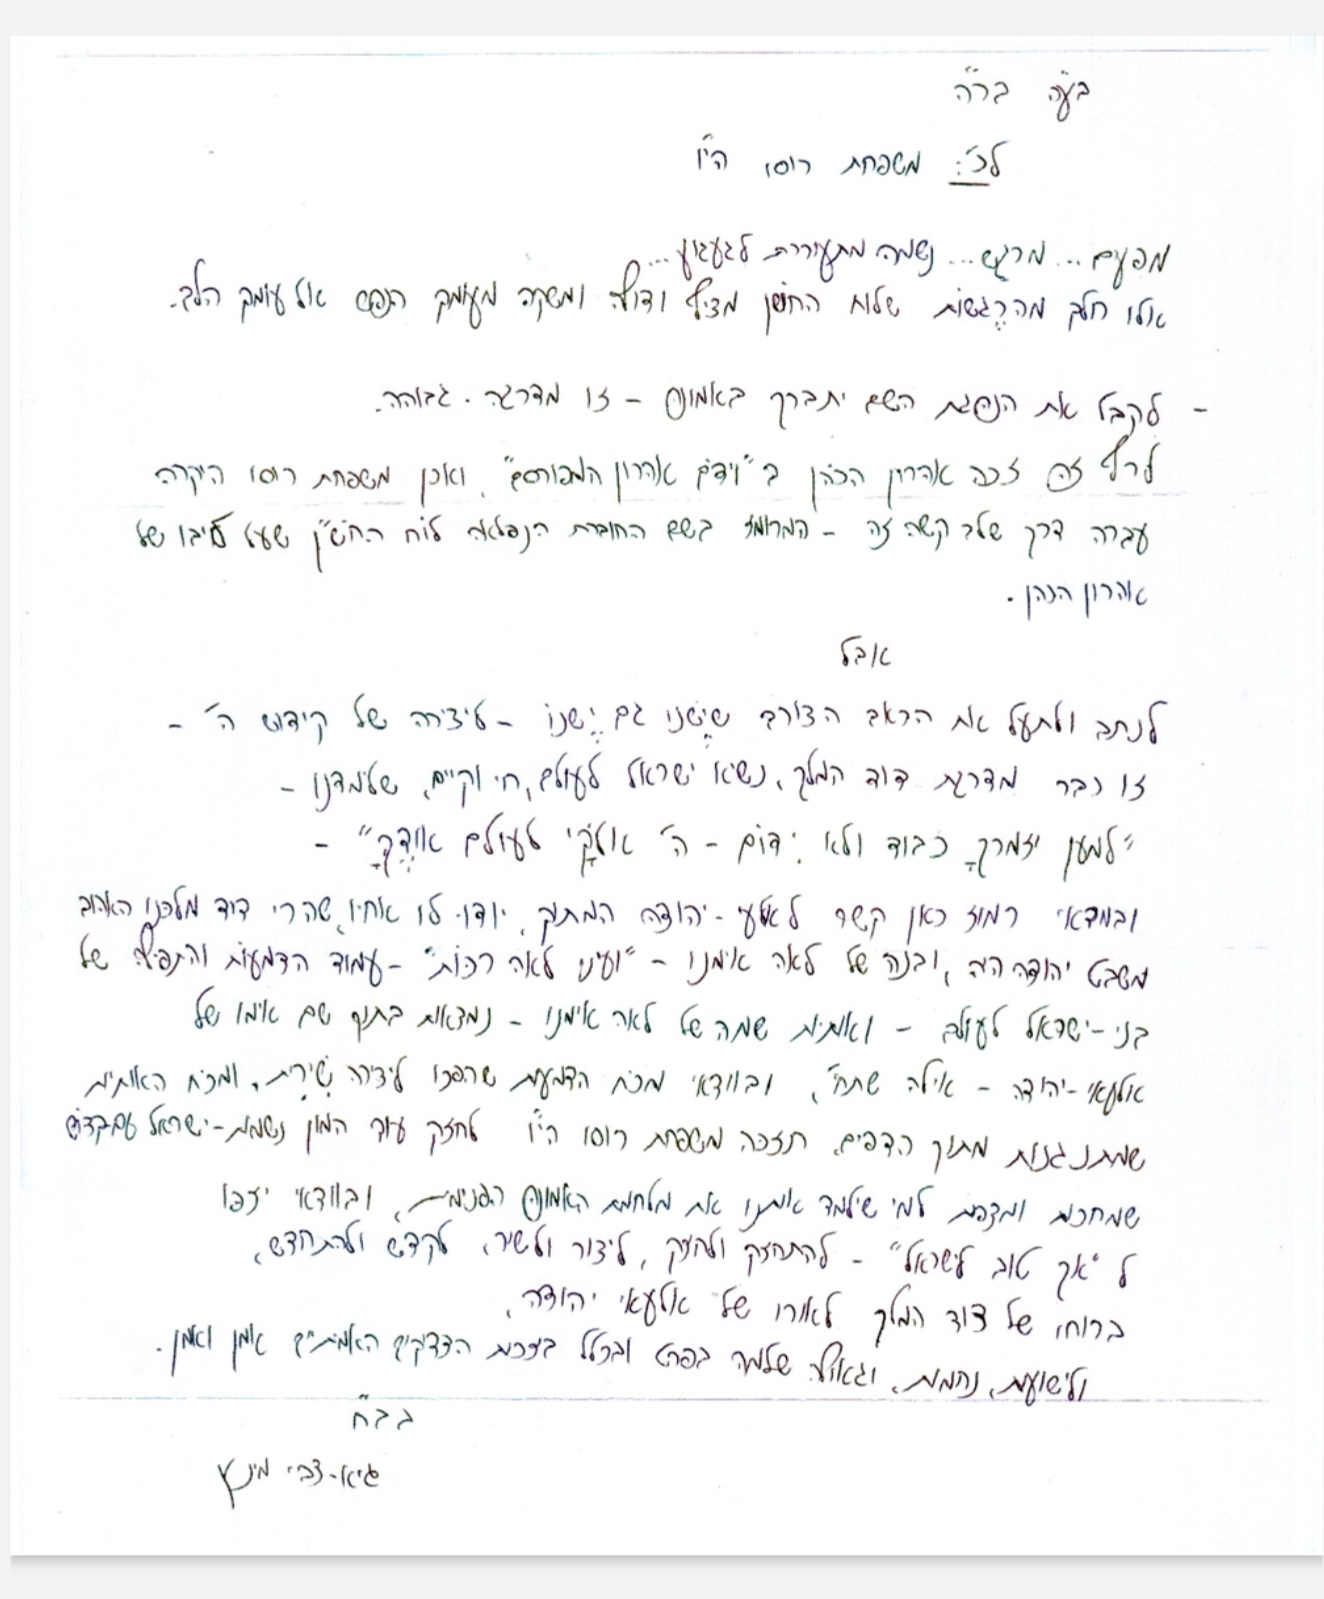 בע"ה ברה"
לכ': משפחת רוסו הי"ו
מפעים... מרגש... נשמה מתעוררת לגעגוע...
אלו חלק מההֶרגשות שלוח החושן מציף ודולה ומשקה מעומק הנפש אל עומק הלב.
- לקבל את הנהגת השם יתברך באמונה - זו מדרגה. גבוהה.
לרף זה זכה אהרון הכהן ב"וידום אהרון המפורסם", ואכן משפחת רוסו היקרה
עברה דרך שלב קשה זה - המרומז בשם החוברת הנפלאה לוח החש"ן שעל ליבו של
אהרון הכהן.
אבל
לנתב ולתעל את הכאב הצורב שיֶשְׁנוֹ גם יֶשְׁנוֹ - ליצירה של קידוש ה' -
זו כבר מדרגת דוד המלך, נשיא ישראל לעולם, חי וקיים, שלימדנו -
"למען יזמרךָ כבוד ולא יִדוֹם - ה' אלוקַי לעולם אוֹדֶךָּ" -
ובוודאי רמוז כאן קשר לאלעאי-יהודה המתוק, יודו לו אחיו, שהרי דוד מלכנו האהוב
משבט יהודה היה, ובנה של לאה אימנו - "ועיני לאה רכות" - עמוד הדמעות והתפילה של
בני-ישראל לעולם - ואותיות שמה של לאה אימנו - נמצאות בתוך שם אימו של
אלעאי-יהודה - אילה שתחי', ובוודאי מכח הדמעות שהפכו ליצירה שִׁירִית, ומכח האותיות
שמתנגנות מתוך הדפים, תזכה משפחת רוסו הי"ו לחזק עוד המון נשמות-ישראל עם קדוש
שמחכות ומצפות למי שילמד אותנו את מלחמת האמונה הפנימית, ובוודאי יזכו
ל"אך טוב לישראל" - להתחזק ולחזק, ליצור ולשיר, לקדש ולהתחדש,
ברוחו של דוד המלך לאורו של אלעאי יהודה,
ולישועות, נחמות, וגאולה שלמה בפרט ובכלל בזכות הצדיקים האמתיים אמן ואמן.
בבח"
גיא-צבי מינץ